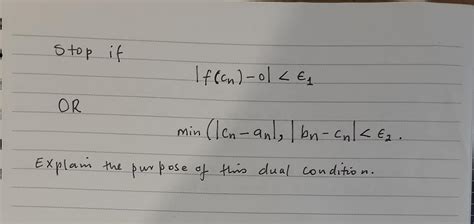 Stop if
|f(cn)-0| < ϵ1
OR
min (|cn-an|, |bn-cn| < ϵ2.
Explain the purpose of this dual condition.